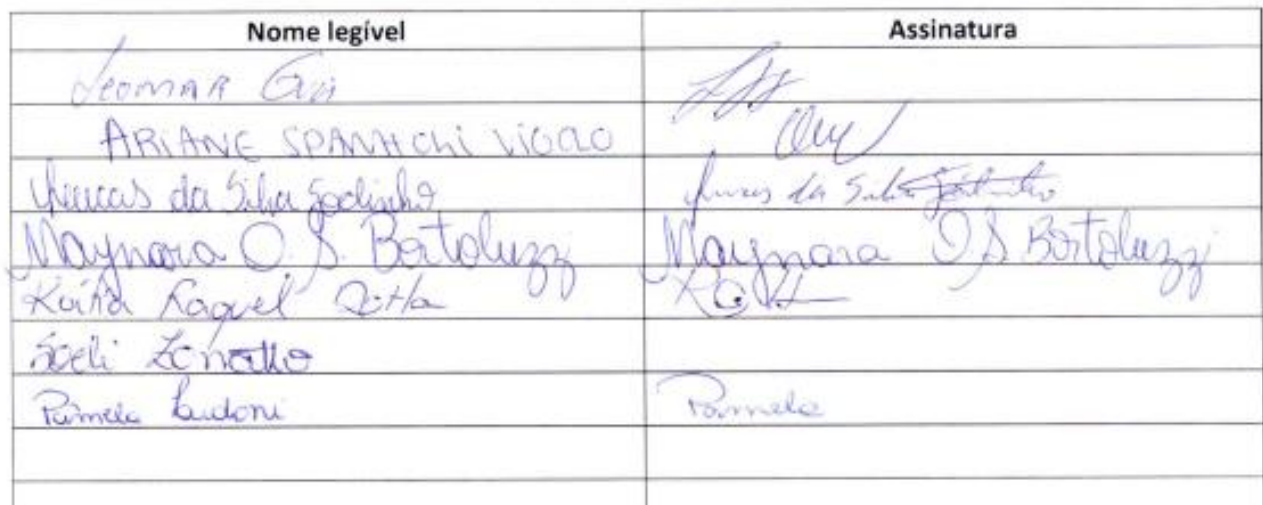 Nome legível Assinatura
Leomar
ARIANE SPANHCHI VIGOLO
Lucas da Silva Godinho Lucas da Silva Godinho
Maynara O. S. Bortoluzzi Maynara O. S. Bortoluzzi
Raquel
Soeli Zonatto
Pâmela Pamela